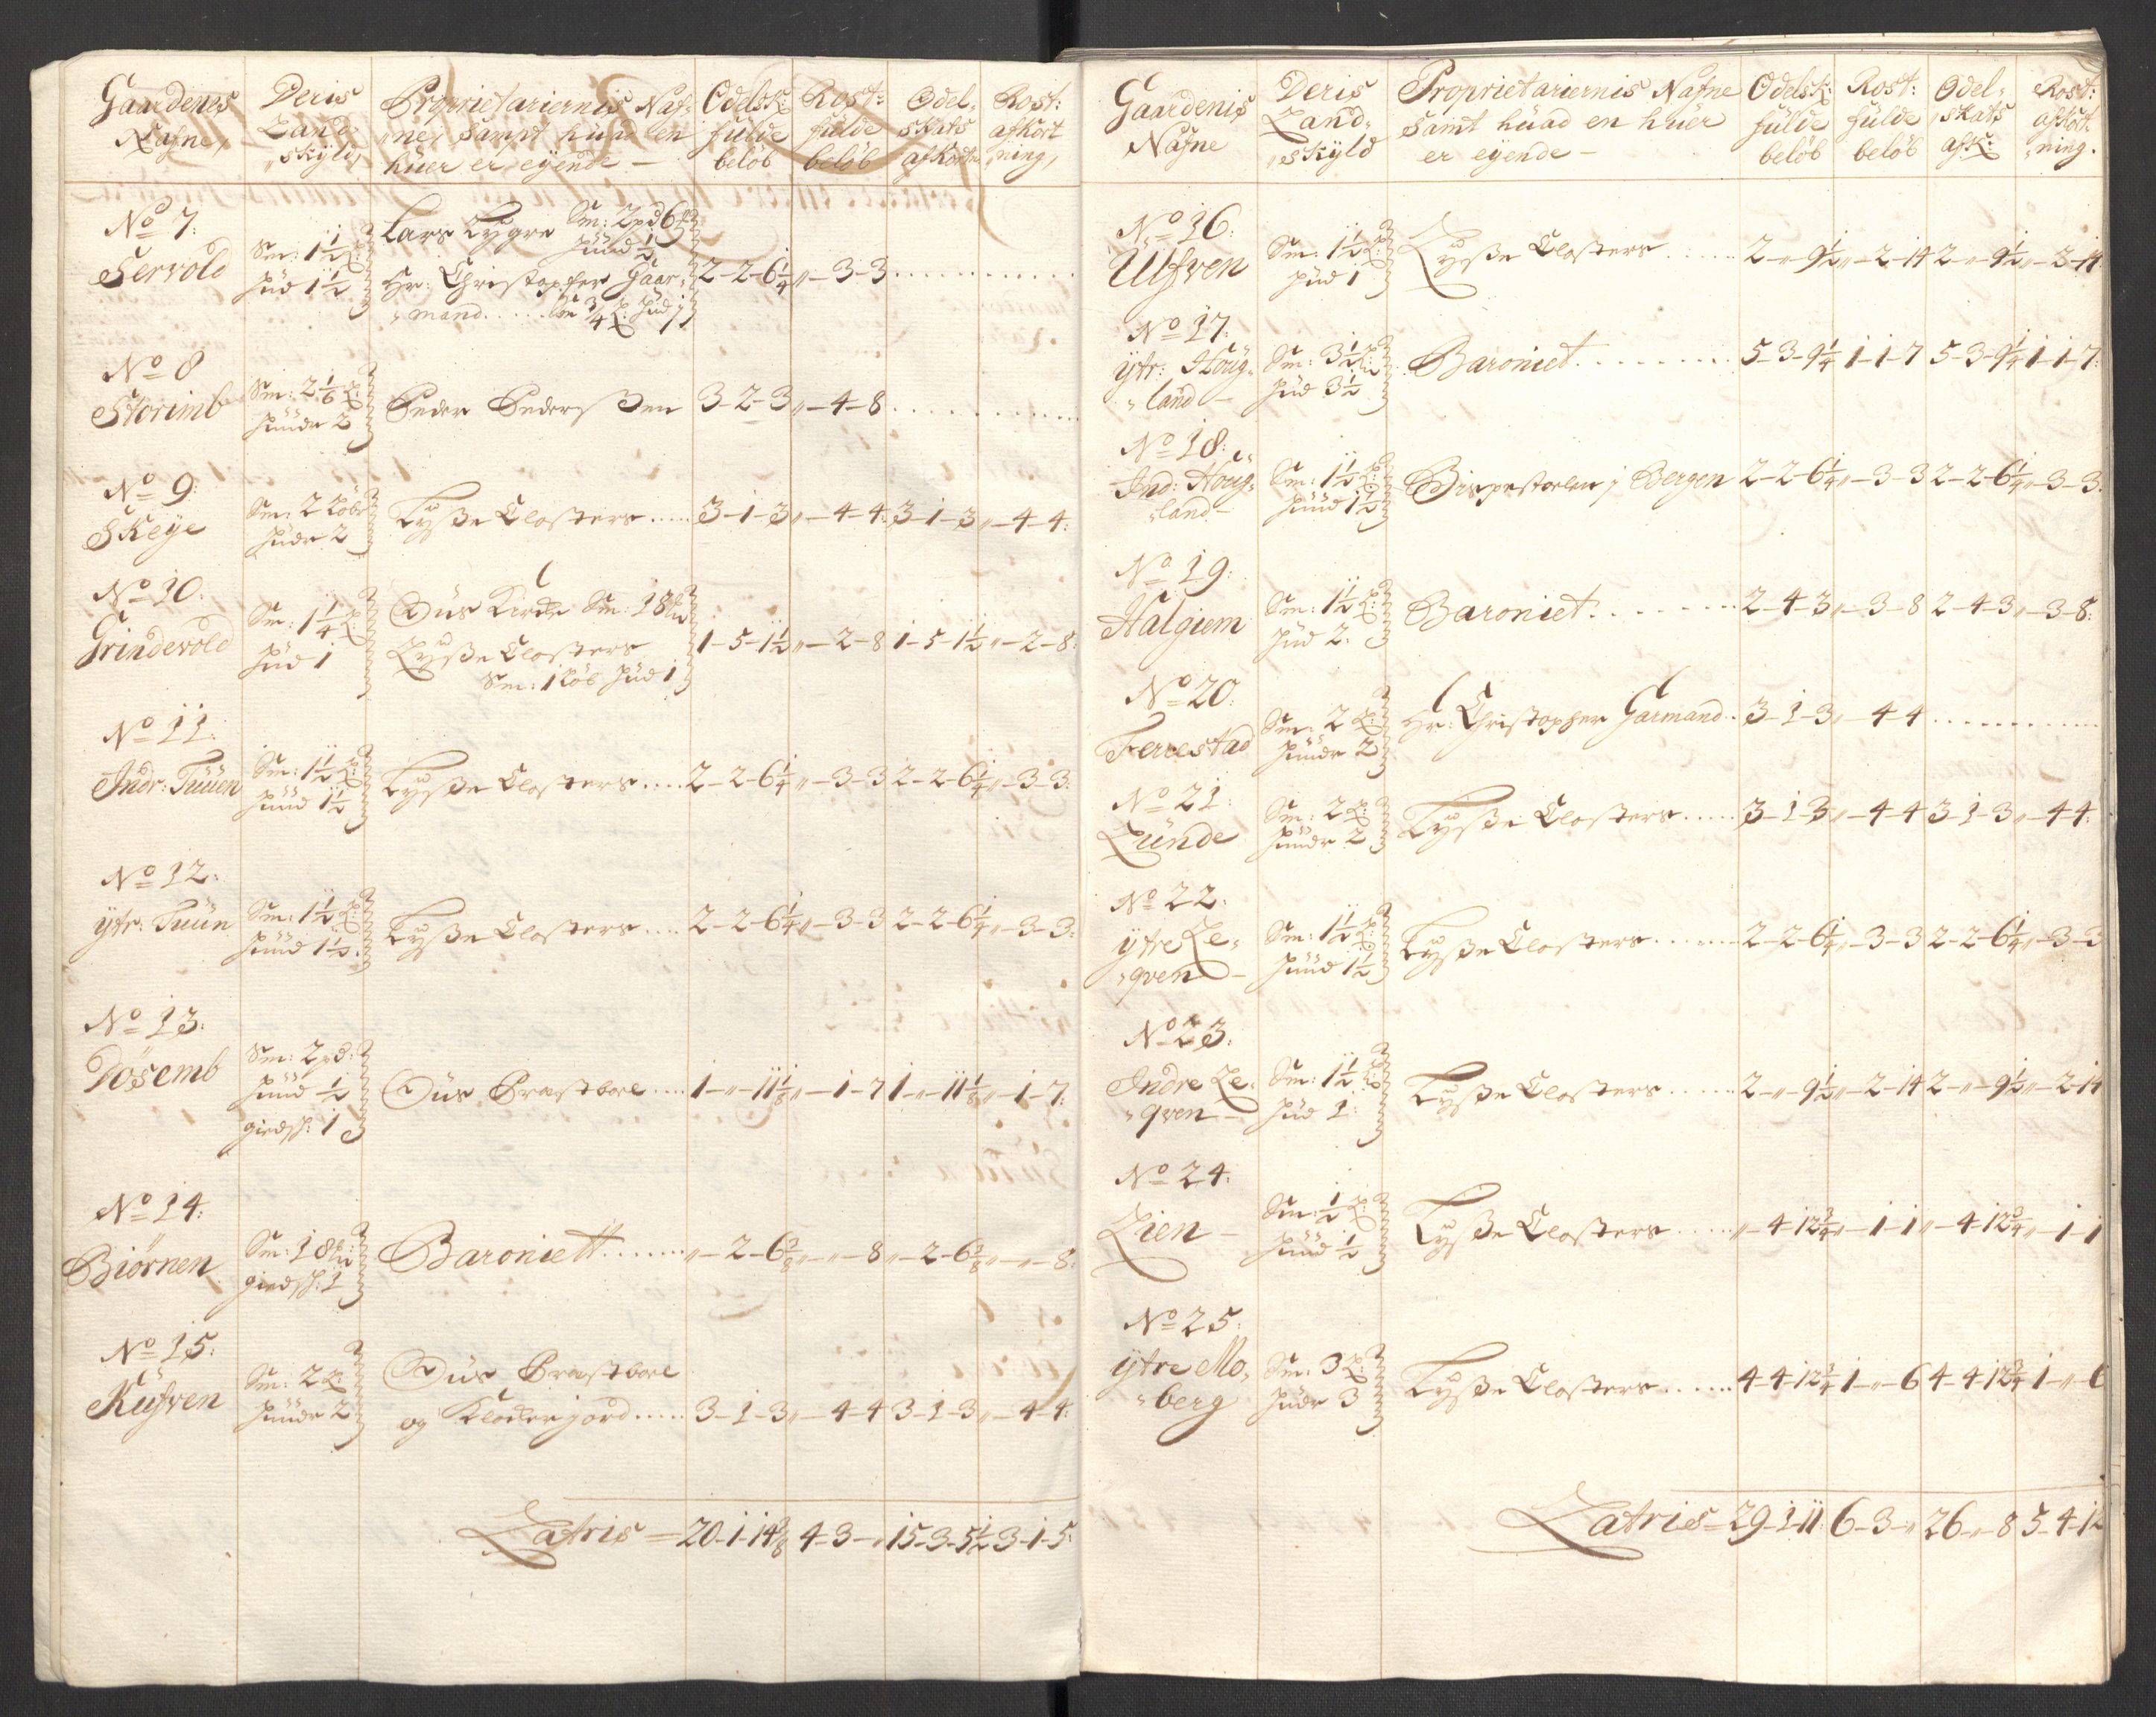 Gaardenes Nafne,
Deris Land„ skyld,
Proprietariernis Naf„ ne, Sampt huad en huer er eyende —
Odelsk: fulde beløb
Rost: fulde beløb
Odel„ skats afkort:
Rost: afkort „ning,
No 7:
Servold
Sm: 1½ L:
Hud 1½
Lars Tygre Sm: 2 pd 6
Huud ½
Hr: Christopher Gaar„
„mand ..... Sm ¾ L: Hud 1
2-2-6¼ „-3-3 ............
No 8
Storimb
Sm: 2⅙ L:
Huude 2
Peder Pederssen 3-2-3 „-4-8 ............
No 9:
Skeye
Sm: 2 Løb
Huder 2
Lysse Closters ..... 3-1-3 „-4-4: 3-1-3 „-4-4:
No 10:
Grindevold
Sm: 1¼ L:
Hud 1
Ous Kirke Sm: 18
Lysse Closters
Sm: 1 Løb Hud 1
1-5-1½ „-2-8 1-5-1½ „-2-8:
No 11:
Indr: Tuuen
Sm: 1½ L:
Huud 1½
Lysse Closters .... 2-2-6¼ „-3-3 2-2-6¼ „-3-3:
No 12:
ytr: Tuun
Sm: 1½ L:
Huud 1½.
Lysse Closters .... 2-2-6¼ „-3-3 2-2-6¼ „-3-3:
No 13:
Døsemb
Sm: 2 pd:
Huud ½
giedsk: 1
Ous Præstboel .... 1-„-11⅛ „-1-7 1-„-11⅛ „-1-7:
No 14:
Biørnen
Sm: 18
giedsk: 1
Baroniett ....... „-2-6⅜ „-„-8 „-2-6⅜ „-„-8:
No 15:
Kufven
Sm: 2 L:
Huude 2
Ous Præstboel
og Klocker jord ..... 3-1-3 „-4-4 3-1-3 „-4-4:
Latris = 20-1-14⅜ 4-3-„ 15-3-5½ 3-1-5:
Gaardenis Nafne
Deris Land„ „skyld
Proprietariernis Nafne Samt huad en huer er eyende —
Odelsk: fulde beløb
Rost: fulde beløb
Odel„ skats afk:
Rost: afkort „ning.
No 16:
Ulfven
Sm: 1½ L:
Hud 1
Lysse Closters ...... 2-„-9½ „-2-14 2-„-9½ „-2-14
No 17:
ytr: Houg„
„land —
Sm: 3½ L:
Hud 3½
Baroniet ........ 5-3-9¼ 1-1-7 5-3-9¼ 1-1-7:
No 18:
Ind: Houg„
„land —
Sm: 1½ L:
Huud 1½
Bispestoelen j Bergen 2-2-6¼ „-3-3 2-2-6¼ „-3-3.
No 19:
Halgiem
Sm: 1½ L:
Hud 2:
Baroniet ....... 2-4-3 „-3-8 2-4-3 „-3-8:
No 20:
Ferrestad
Sm: 2 L:
Huude 2
Hr: Christopher Garmand .. 3-1-3 „-4 4 ............
No 21:
Lunde
Sm: 2 L:
Huude 2
Lysse Closters ..... 3-1-3 „-4 4 3-1-3 „-4 4:
No 22:
ytre Le„
„qven —
Sm: 1½ L:
Huud 1½
Lysse Closters ...... 2-2-6¼ „-3-3 2-2-6¼ „-3-3
No 23:
Indre Le„
„qven —
Sm: 1½ L:
Hud 1:
Lysse Closters ...... 2-„-9½ „-2-14 2-„-9½ „-2-14
No 24:
Lien —
Sm: ½ L:
Huud ½
Lysse Closters ..... „-4-12¾ „-1-1 „-4-12¾ „-1-1
No 25:
ytre Mo„
„berg
Sm: 3 L:
Huder 3
Lysse Closters ...... 4-4-12¾ 1-„-6 4-4-12¾ 1-„-6
Latris = 29-1-11: 6-3-„ 26-„-8 5-4-12